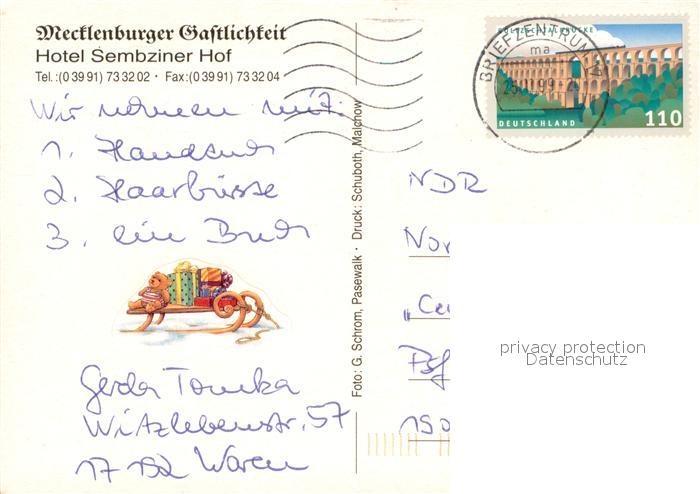 Mecklenburger Gastlichkeit
Hotel Sembziner Hof
Tel.:(0 39 91) 73 32 02 · Fax:(0 39 91) 73 32 04
Wir nehmen mit:
1. Handtuch
2. Haarbürste
3. ein Buch
Gerda Tomka
Witzlebenstr. 57
17 192 Waren
Foto: G. Schrom, Pasewalk · Druck: Schuboth, Malchow
BRIEFZENTRUM
ma
GÖLTZSCHTALBRÜCKE
DEUTSCHLAND
110
NDR
privacy protection
Datenschutz